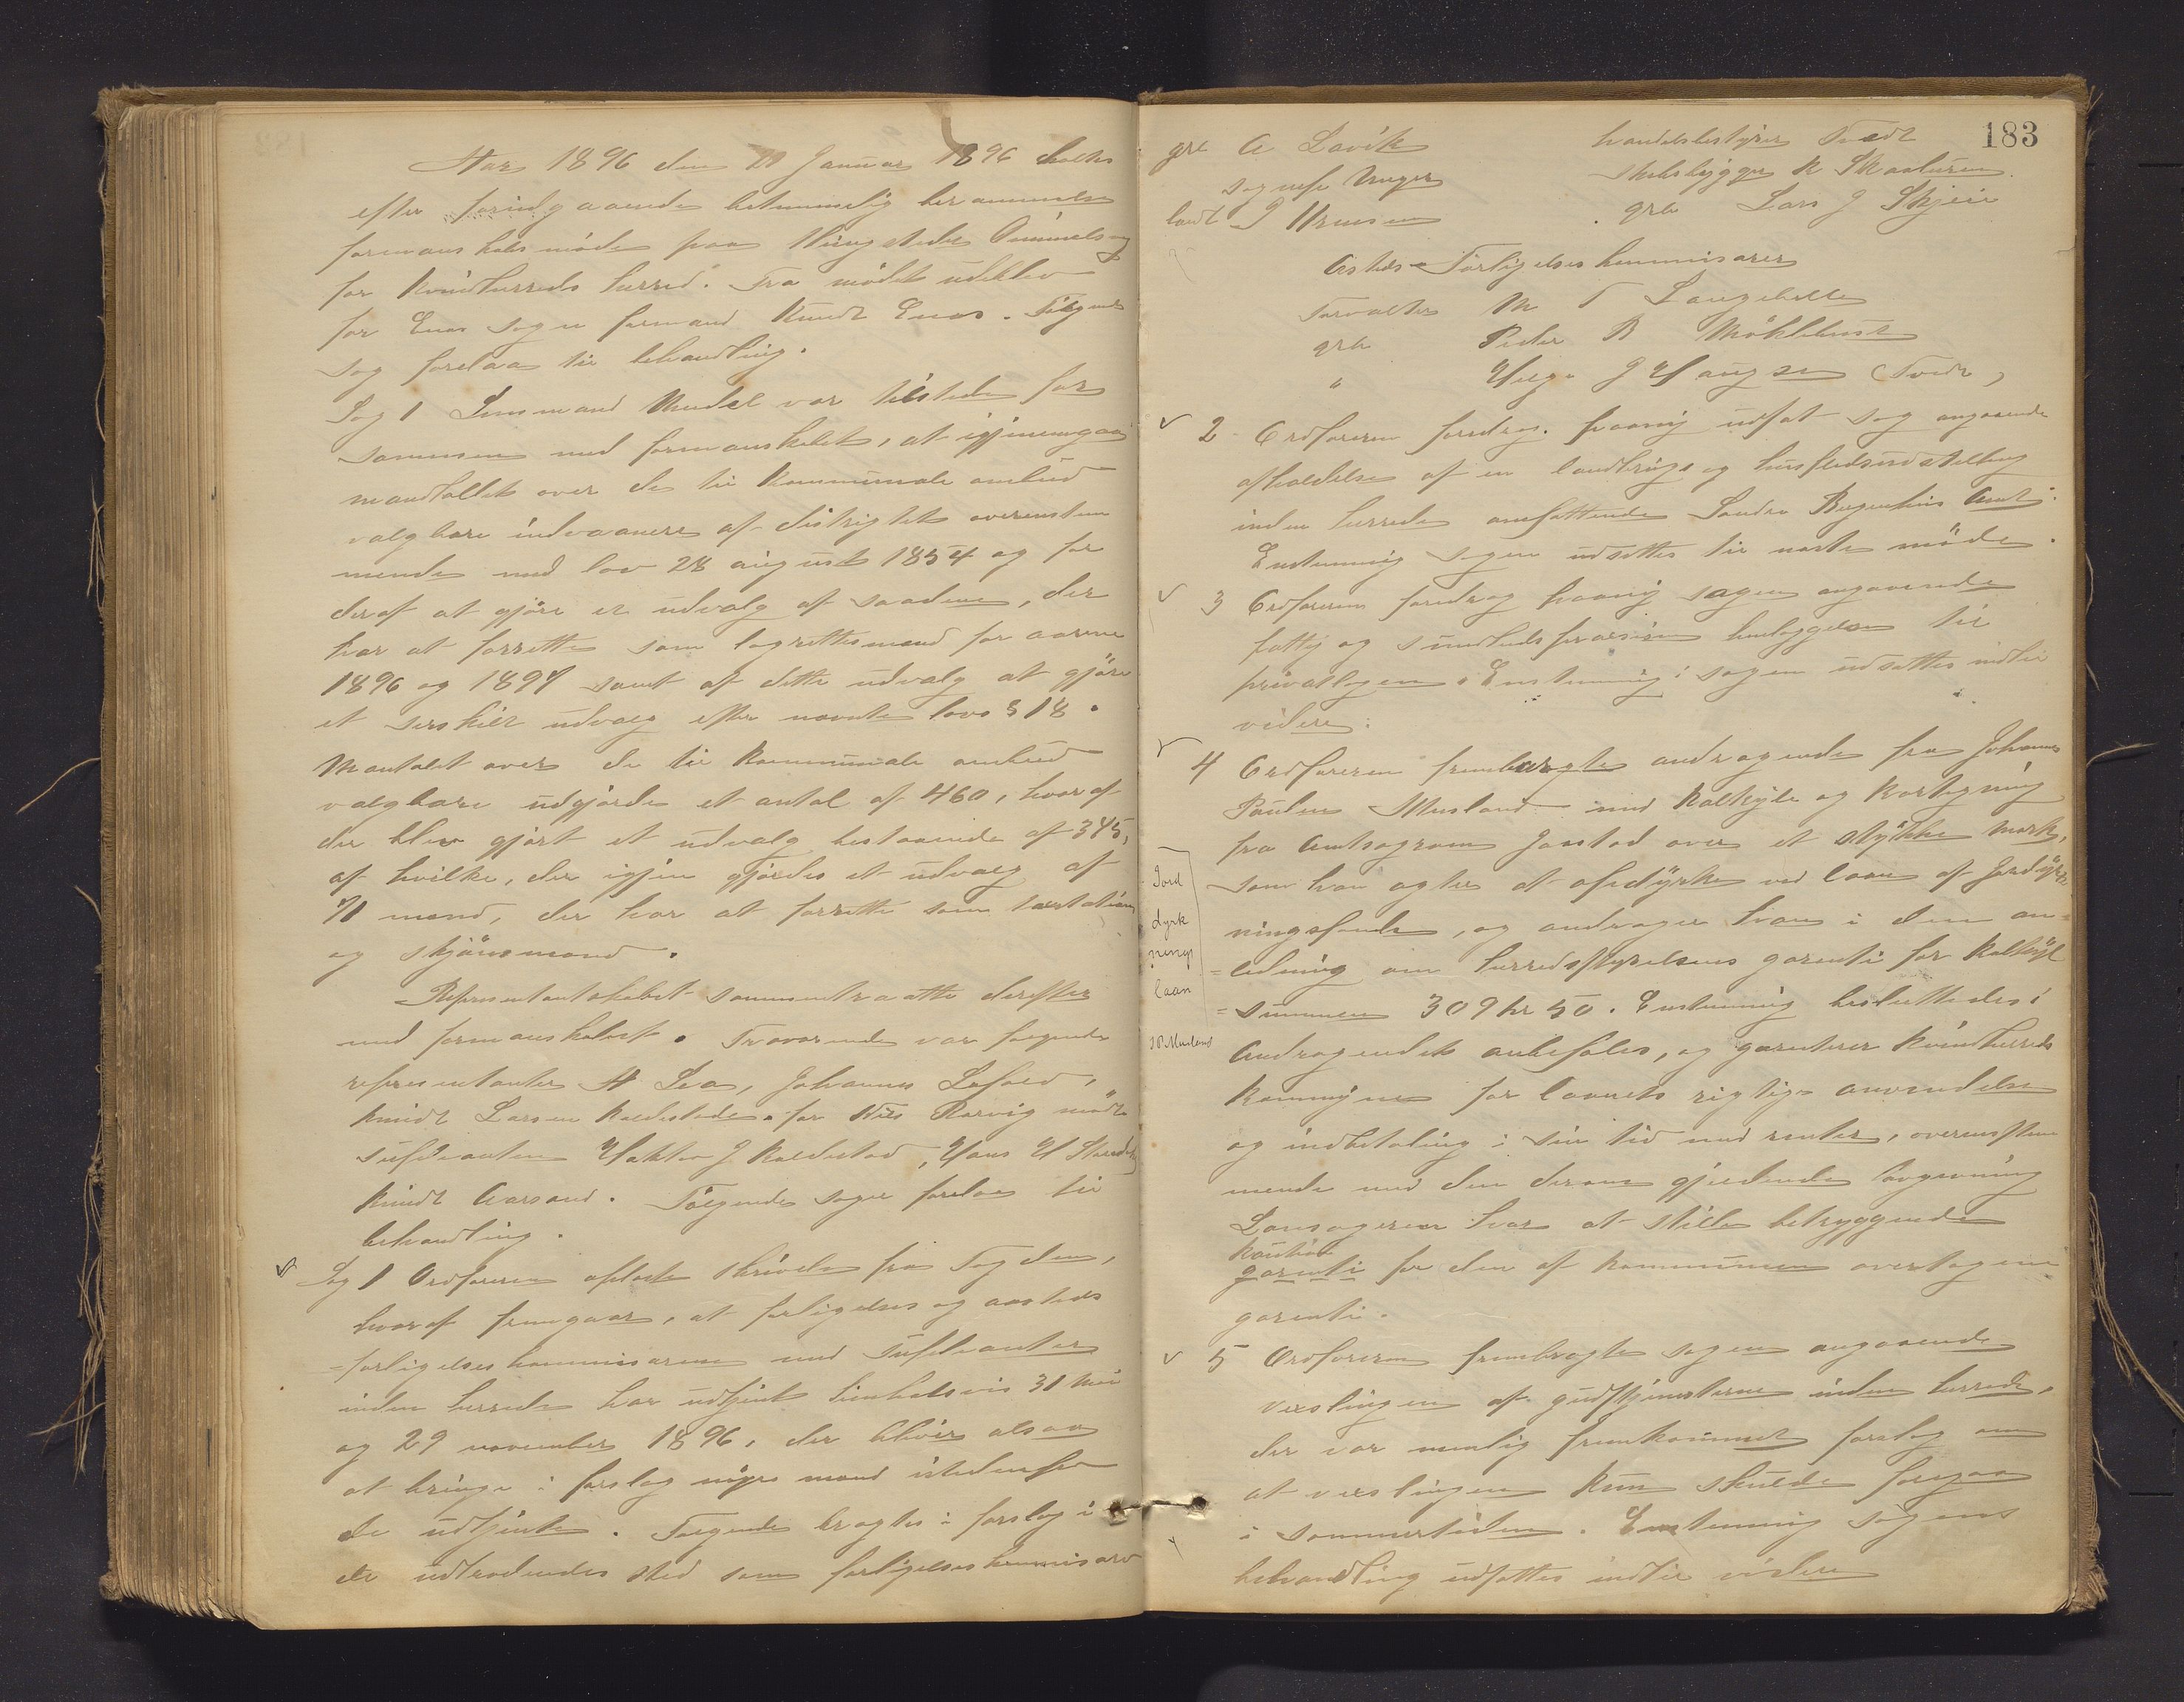 Aar 1896 den 11 Januar 1896 holtes
efter forudgaaende betimmelig berammelse
formandskabsmöde paa thingstedet Ømmelsvig
for Kvindherreds herred. Fra mödet udeblev
for Enes sogn formand Knudt Enes. Følgende
sag forelaa til behandling.
Sag 1 Lensmand Mehdel var tilstede for
sammen med formandskabet, at igjennemgaa
mandtallet over de til Kommunale ombud
valgbare indvaanere af distrigtet overenstem
mende med lov 28 august 1854 og for
deraf at gjöre et udvalg af saadane, der
har at forrette som lagrettesmænd for aarene
1896 og 1897 samt af dette udvalg at gjöre
et serskilt udvalg efter nævnte lovs § 18.
Mantalet over de til Kommunale ombud
valgbare udgjorde et antal af 460, hvoraf
der blev gjort et udvalg bestaaende af 345,
af hvilke, der igjen gjordes et udvalg af
71 mænd, der har at forrette som taxtations
og skjönsmænd.
Representantskabet sammentraatte derefter
med formandskabet. Fraværende var følgende
representanter A Sea, Johannes Lofald,
Knudt Larsen Koldestade. for Nils Rorvig mödte
sufleanten Haktor J Koldestad, Hans H
Knudt Aarsand. Følgende sager forelaa til
behandling.
Sag 1 Ordføreren oplæste skrivelse fra Fogden,
hvoraf fremgaar, at forligelses og aasteds
=forligelseskommisærene med sufleanter
inden herredet har udtjent henholsvis 31 Mai
og 29 november 1896, der bliver alsaa
at bringe i forslag nye mænd istedenfor
de udtjente. Følgende bragtes i forslag i
de udtrædendes sted som forligelseskommisær
183
grb A Lavik handelsbestyrer Tvedt
sogneps Unger skibsbygger K Skaaluren
landt J Hrmsen grb Lars J Skjeie
Asteds=Forligelseskommisærer
Forvalter M T Langebille
grb Peder B Möklebust
" Helge J Haugen (Tvedt)
2 Ordföreren foredrog paany udsat sag angaaende
afholdelse af en landbrugs og husflidsudstilling
inden herredet omfattende Søndre Bergenhus Amt.
Enstemmig sagen udsættes til næste möde.
3 Ordføreren foredrog paany sagen angaaende
fattig og sundheds præsiøen henlæggelsen til
privatlægen. Enstemmig: sagen udsættes indtil
videre.
4 Ordføreren frembragte andragende fra Johannes
Paulsen Musland med Kalkyle og Kortegning
fra Amtsagronom Jaastad over et stykke mark,
som han agter at opdyrke ved laan af Jordyrk
ningsfondet, og andrager han i den an=
=ledning om herredsstyrelsens garanti for Kalkyl
=summen 309 kr 50. Enstemmig besluttedes:
Andragendet anbefales, og garanterer Kvindherreds
Kommune for laanets rigtige anvendelse
og indbetaling i sin tid med renter, overensstem
mende med den derom gjeldende lovgivning
Laansøgeren har at stille betryggende
kaution
garanti for den af kommunen overtagne
garanti.
Jord
dyrk
nings
laan
5 Ordføreren frembragte sagen angaaende
vexlingen af gudstjenesterne inden herredet,
der var nemlig fremkommet forslag om
at vexlingen kun skulde foregaa
i sommertiden. Enstemmig sagens
behandling udsættes indtil videre